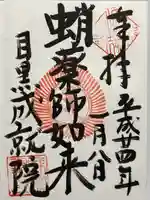 奉拝
平成廿四年
一月八日
蛸薬師如来
目黒 成就院